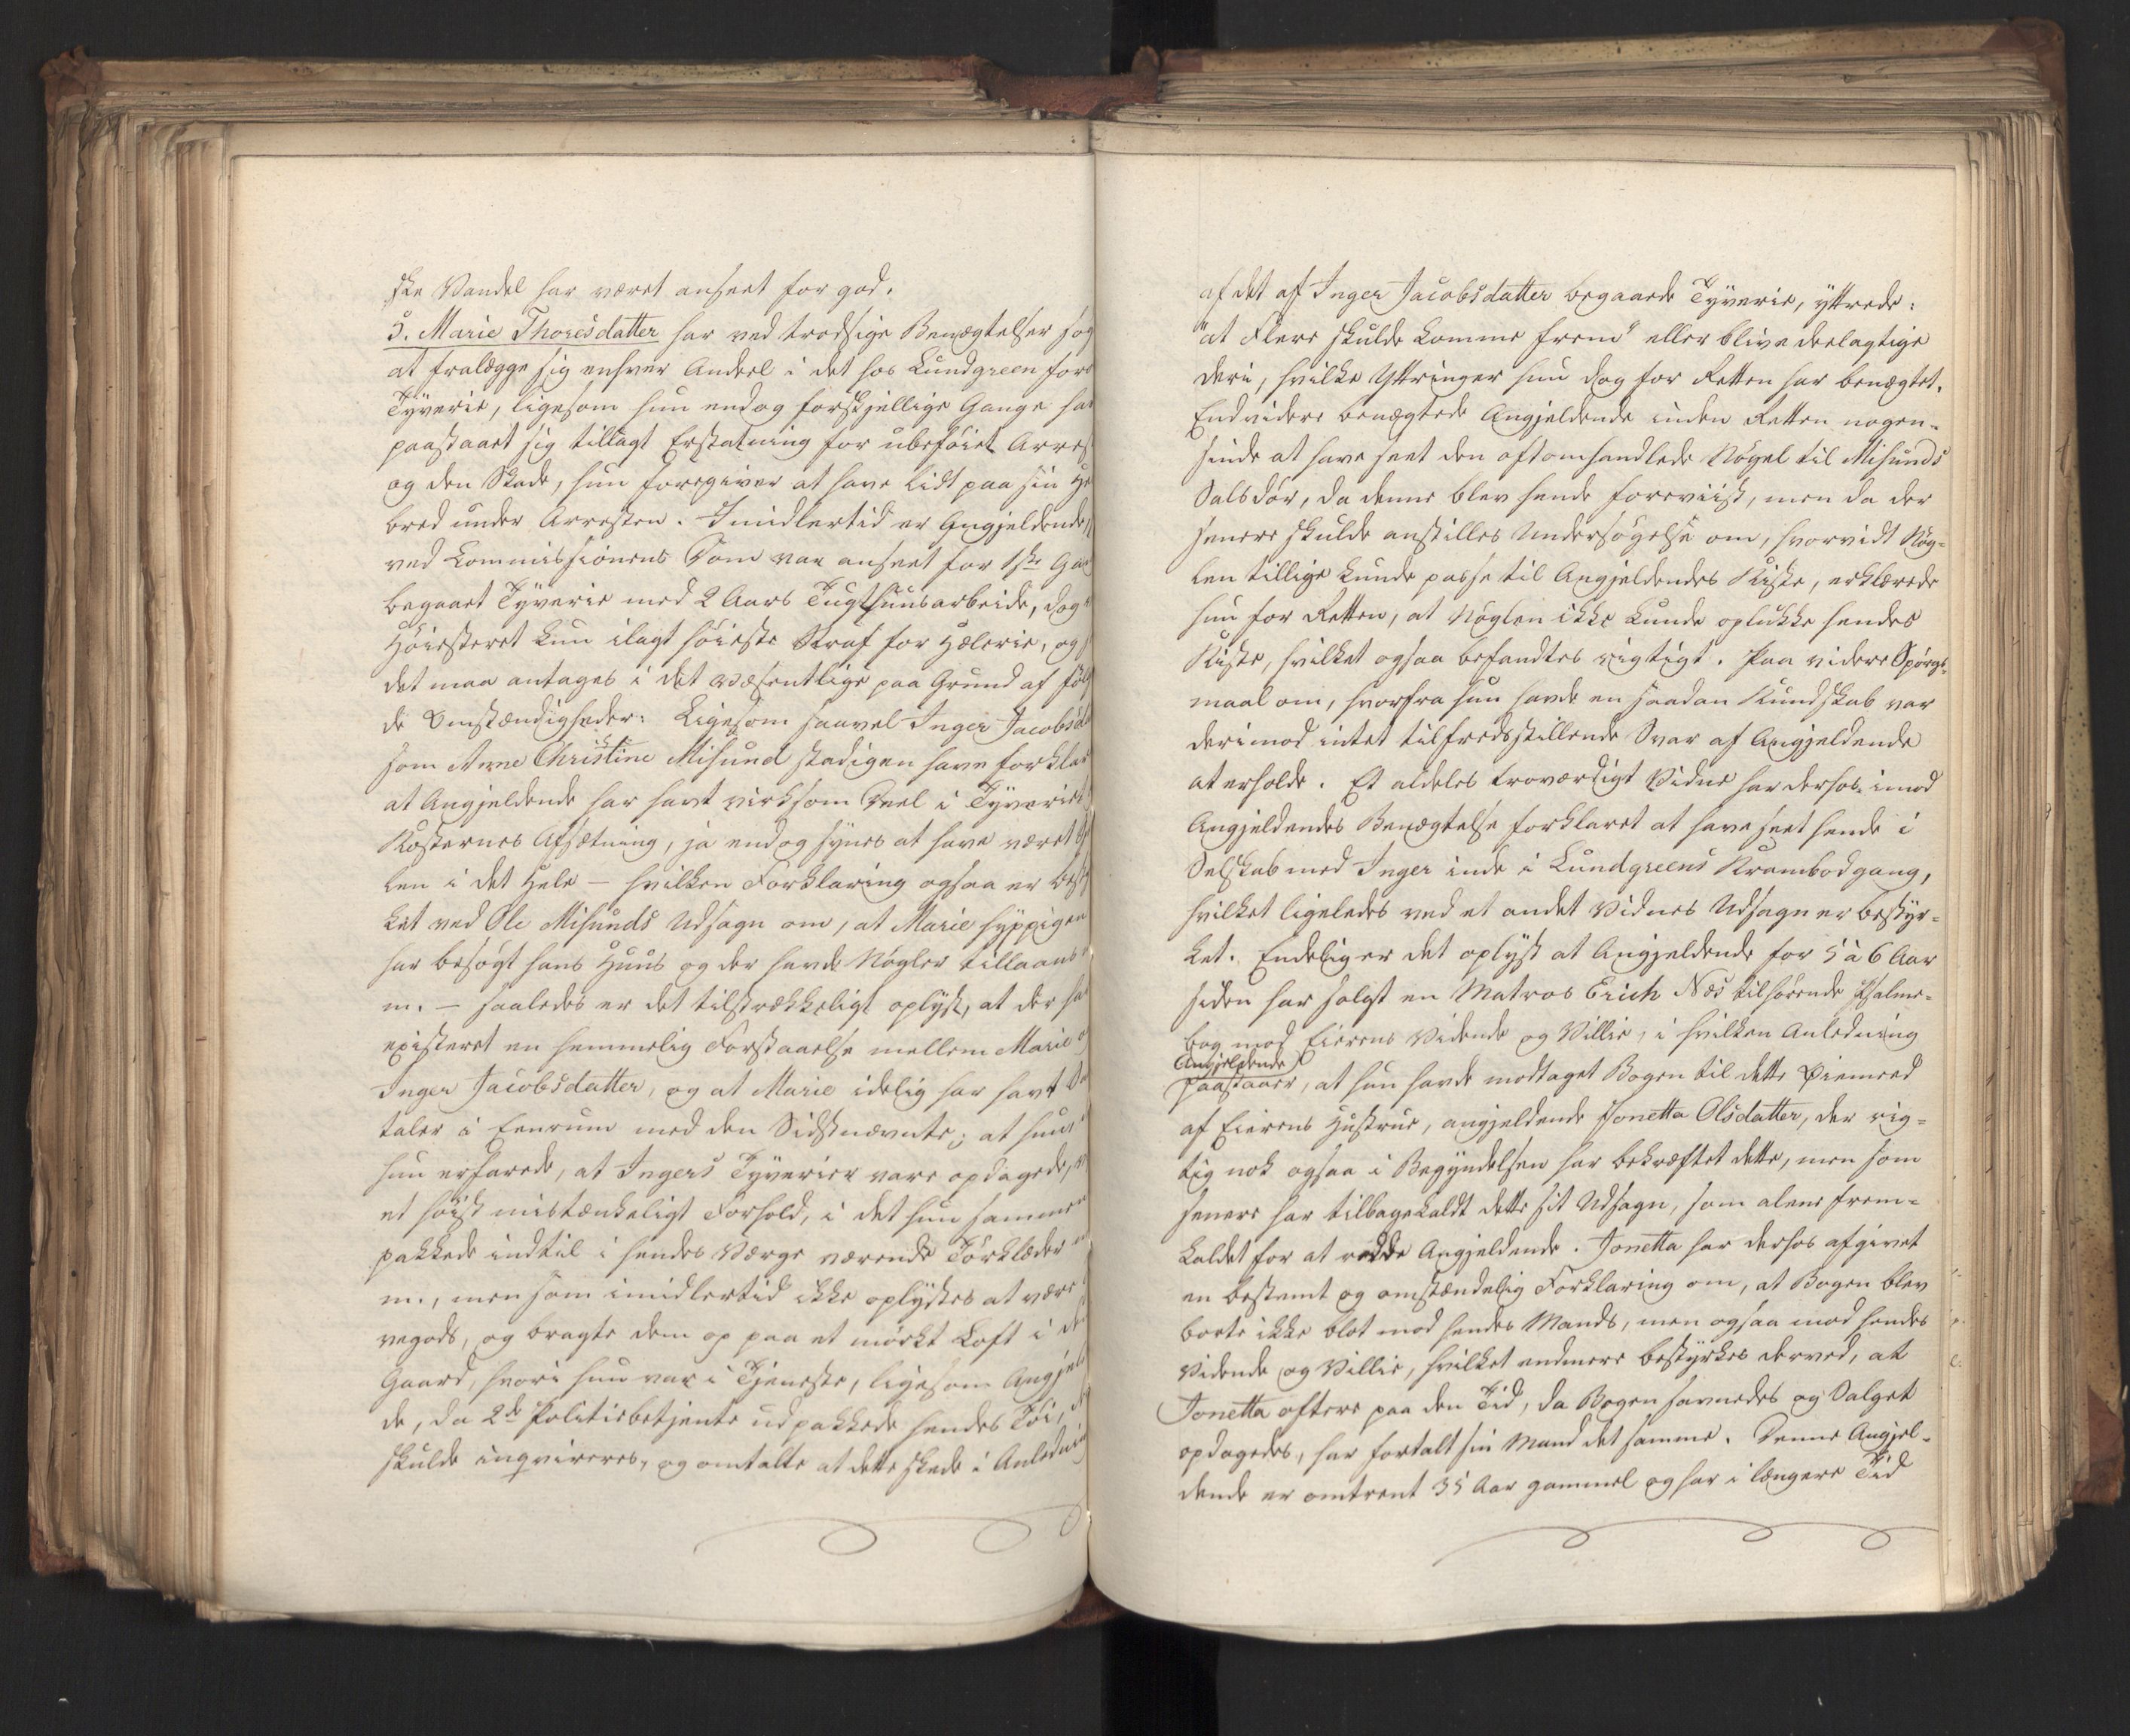 ske Vandel har været anseet for god.
5. Marie Thoresdatter har ved trodsige Benægtelser søg
at fralægge sig enhver Andeel i det hos Lundgreen for
Tyverie, ligesom hun endog forskjellige Gange har
paastaaet sig tillagt Erstatning for ubeføiet Arrest
og den Skade, hun foregiver at have lidt paa sin He
bred under Arresten. Imidlertid er Angjeldende,
ved Commissionens Dom var anseet for 1ste Gang
begaaet Tyverie med 2 Aars Tugthuusarbeide, dog
Høiesteret kun ilagt høieste Straf for Hælerie, og
det maa antages i det væsentlige paa Grund af følg
de Omstændigheder: Ligesom saavel Inger Jacobsda
som Anne Christine Misund stadigen have forklar
at Angjeldende har havt virksom Deel i Tyveriet
Kosternes Afsætning, ja endog synes at have været
len i det Hele – hvilken Forklaring ogsaa er besty
ket ved Ole Misunds Udsagn om, at Marie hyppigen
har besøgt hans Huus og der havde Nøgler tillaans
m. – saaledes er det tilstrækkeligt oplyst, at der har
existeret en hemmelig Forstaaelse mellem Marie o
Inger Jacobsdatter, og at Marie idelig har havt Sa
taler i Eenrum med den Sidstnævnte; at hun
hun erfarede, at Ingers Tyverier vare opdagede,
et høist mistænkeligt Forhold, i det hun sammen
pakkede indtil i hendes Værge værende Tørklæder
m., men som imidlertid ikke oplystes at være
vegods, og bragte dem op paa et mørkt Loft i den
Gaard, hvori hun var i Tjeneste, ligesom Angjel
de, da 2de Politiebetjente udpakkede hendes Tøi,
skulde inqvireres, og omtalte at dette skede i Anledning
af det af Inger Jacobsdatter begaaede Tyverie, yttrede:
"at Flere skulde komme frem" eller blive deelagtige
deri, hvilke Yttringer hun dog for Retten har benægtet.
Endvidere benægtede Angjeldende inden Retten nogen-
sinde at have seet den oftomhandlede Nøgel til Misunds
Salsdør, da denne blev hende foreviist, men da der
senere skulde anstilles Undersøgelse om, hvorvidt Nøg-
len tillige kunde passe til Angjeldendes Kiste, erklærede
hun for Retten, at Nøglen ikke kunde oplukke hendes
Kiste, hvilket ogsaa befandtes rigtigt. Paa videre Spørgs-
maal om, hvorfra hun havde en saadan Kundskab var
derimod intet tilfredsstillende Svar af Angjeldende
at erholde. Et aldeles troværdigt Vidne har derhos imod
Angjeldendes Benægtelse forklaret at have seet hende i
Selskab med Inger inde i Lundgreens Krambodgang,
hvilket ligeledes ved et andet Vidnes Udsagn er bestyr-
ket. Endelig er det oplyst at Angjeldende for 5 à 6 Aar
siden har solgt en Matros Erich Næs tilhørende Psalme-
bog mod Eierens Vidende og Villie, i hvilken Anledning
Angjeldende
paastaaer, at hun havde modtaget Bogen til dette Øiemeed
af Eierens Hustrue, angjeldende Jonetta Olsdatter, der rig-
tig nok ogsaa i Begyndelsen har bekræftet dette, men som
senere har tilbagekaldt dette sit Udsagn, som alene frem-
kaldet for at redde Angjeldende. Jonetta har derhos afgivet
en bestemt og omstændelig Forklaring om, at Bogen blev
borte ikke blot mod hendes Mands, men ogsaa mod hendes
Vidende og Villie, hvilket endmere bestyrkes derved, at
Jonetta oftere paa den Tid, da Bogen savnedes og Salget
opdagedes, har fortalt sin Mand det samme. Denne Angjel-
dende er omtrent 35 Aar gammel og har i længere Tid